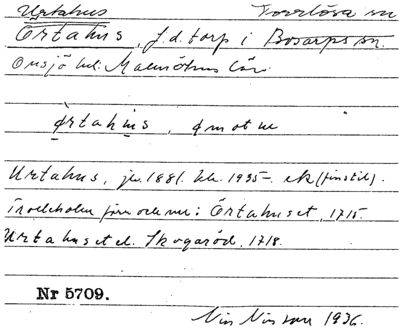 Urtahus Torrlösa sn
Örtahus, f.d. torp i Bosarps sn.
Onsjö hd. Malmöhus län.
ørtahus, ønotne "
Urtahus, jw. 1881. Kk. 1935 ek (finstil).
Trolleholm förr och nu: Örtahuset, 1715.
Urtahuset el. Skogaröd, 1718.
Nr 5709.
Nils Nilsson 1936.